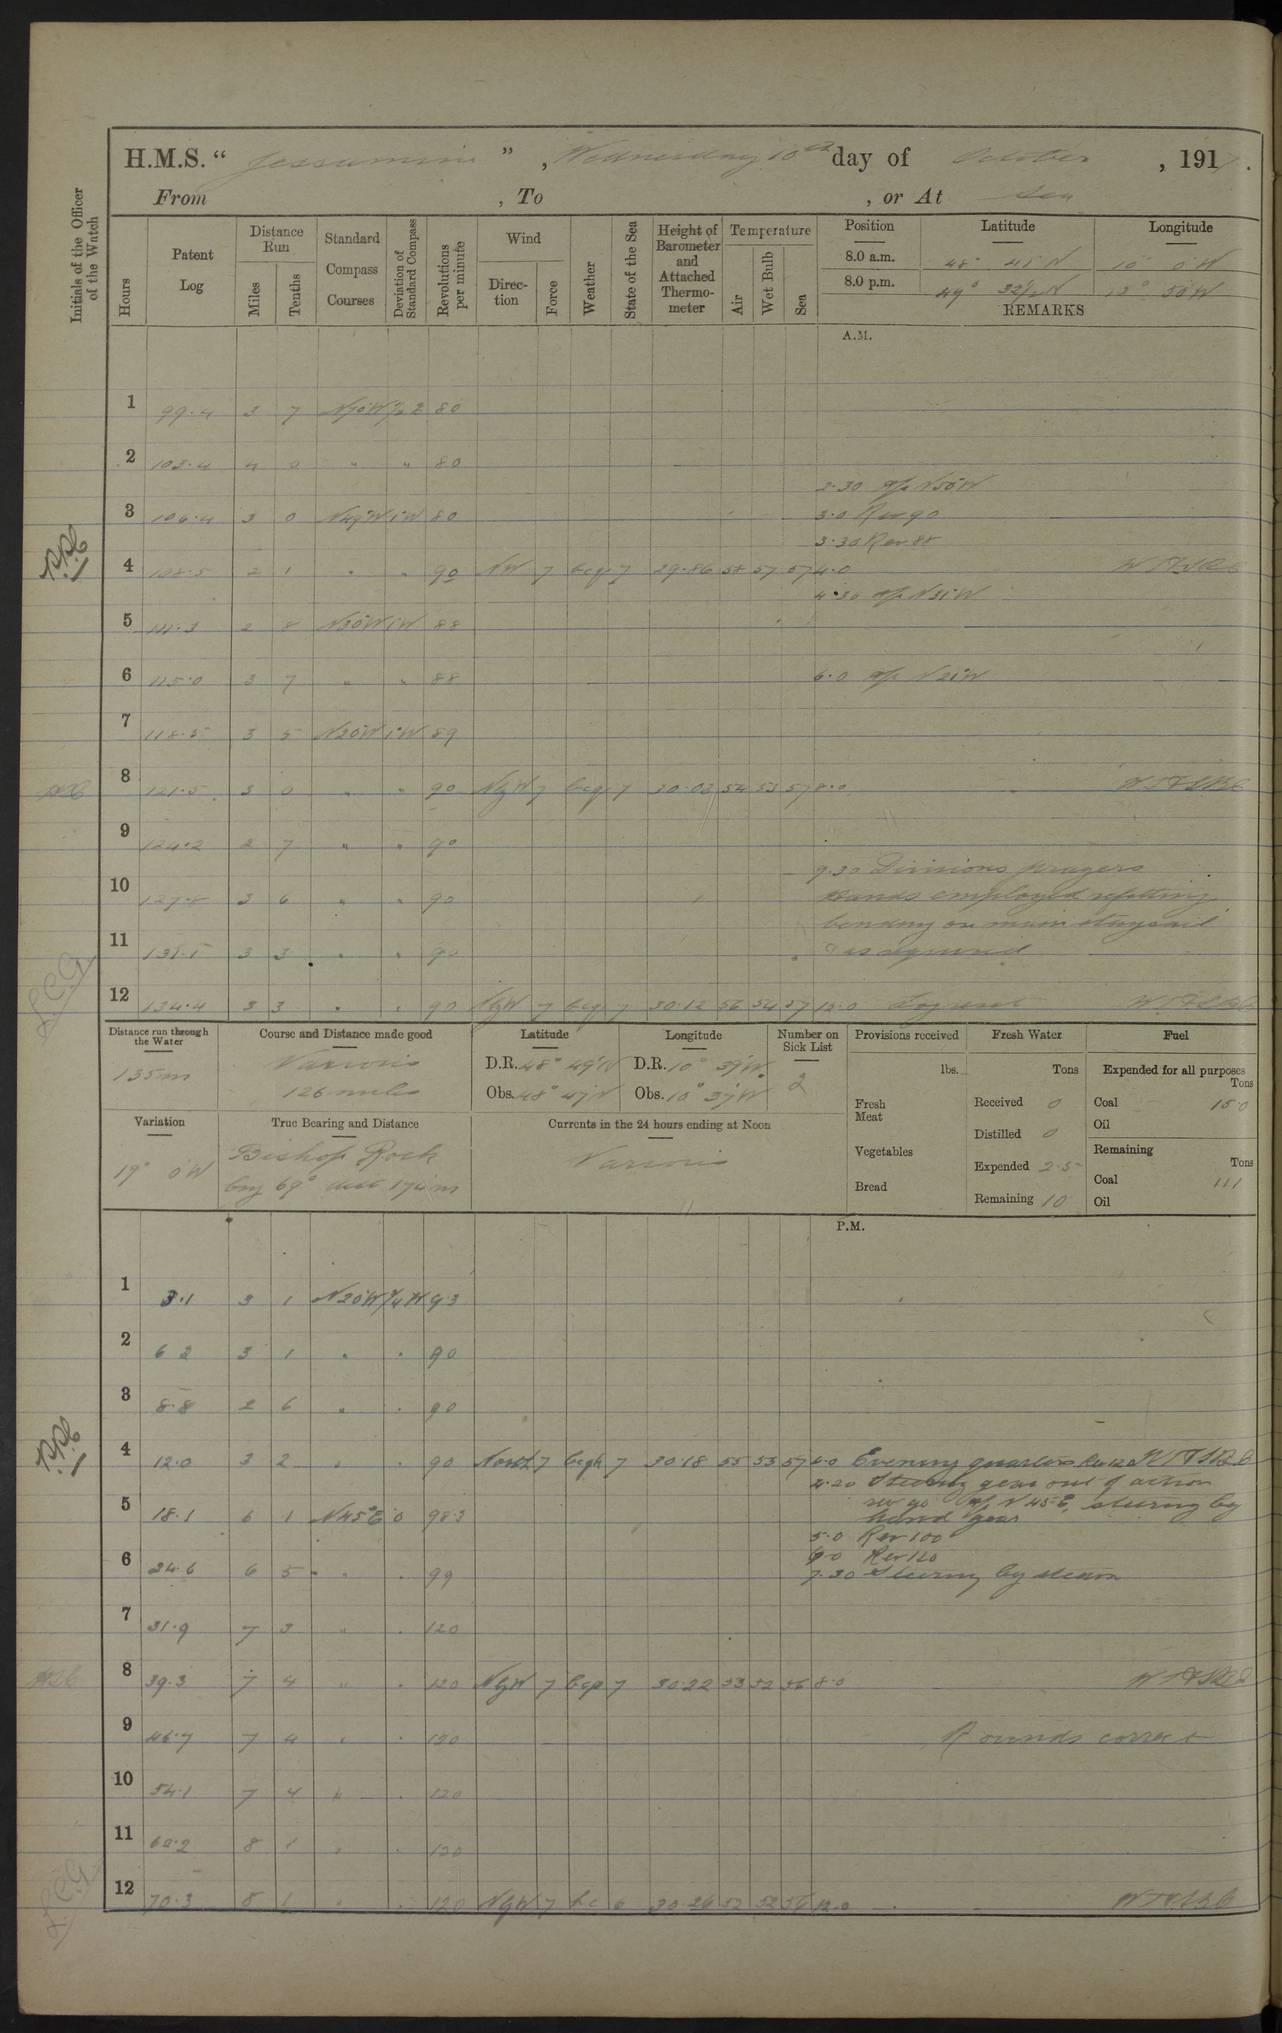 H.M.S. " Jessamine ", Wednesday 10th day of October, 191
From , To , or At Sea
Initials of the Officer of the Watch
Hours
Patent Log
Distance Run
Miles
Tenths
Standard Compass Courses
Deviation of Standard Compass
Revolutions per minute
Wind
Direction
Force
Weather
State of the Sea
Height of Barometer and Attached Thermometer
Temperature
Air
Wet Bulb
Sea
Position Latitude Longitude
8.0 a.m. 48° 45' N 10° 0' W
8.0 p.m. 49° 32½ N
REMARKS
A.M.
1 99.4 3 7 80
2 103.4 4 0 " " 80
2.30 a/c N50W
3 106.4 3 0 N49°W 1°W 80 3.0 Rev 90
3.30 Rev 88
4 108.5 2 1 " " 90 NW 7 bcq 7 29.86 58 57 57 4.0
4.30 a/c N31W
5 111.3 2 8 N30W 1W 88
6 115.0 3 7 " " 88 6.0 a/c N21W
7 118.5 3 5 N20W 1°W 89
8 121.5 3 0 " " 90 NbyW 7 bcq 7 30.03 54 53 57 8.0
9 124.2 2 7 " " 90
9.30 Divisions prayers
10 127.8 3 6 " " 90 Hands employed refitting
bending on main staysail
11 131.1 3 3 " " 90 as required
12 134.4 3 3 " " 90 NbyW 7 bcq 7 30.12 56 54 57 12.0
Distance run through the Water
135 m
Course and Distance made good
Various
126 miles
Latitude
D.R. 48° 49' N
Obs. 48° 47' N
Longitude
D.R. 10° 39' W
Obs. 10° 37' W
Number on Sick List
2
Provisions received
lbs.
Fresh Meat
Vegetables
Bread
Fresh Water
Tons
Received 0
Distilled 0
Expended 2.5
Remaining 10
Fuel
Expended for all purposes
Tons
Coal 15.0
Oil
Remaining
Tons
Coal 111
Oil
Variation
19° 0 W
True Bearing and Distance
Bishop Rock
brg 69° dist 174 m
Currents in the 24 hours ending at Noon
Various
P.M.
1 3.1 3 1 N20°W ¾ W 93
2 6 2 3 1 " " 90
3 8.8 2 6 " " 90
4 12.0 3 2 " " 90 North 7 bcqh 7 30.18 55 53 57 4.0 Evening quarters
4.20 Steering gear out of action
rev 90 a/c N 45 E, steering by
5 18.1 6 1 N45°E 0 98.3 hand gear
5.0 Rev 100
6 24.6 6 5 " " 99 6.0 Rev 120
7.30 Steering by steam
7 31.9 7 3 " " 120
8 39.3 7 4 " " 120 NbyW 7 bcp 7 30.22 53 52 56 8.0
9 46.7 7 4 " " 120 Rounds correct
10 54.1 7 4 " " 120
11 62.2 8 1 " " 120
12 70.3 8 1 " " 120 NbyW 7 bc 6 30.26 52 52 56 12.0